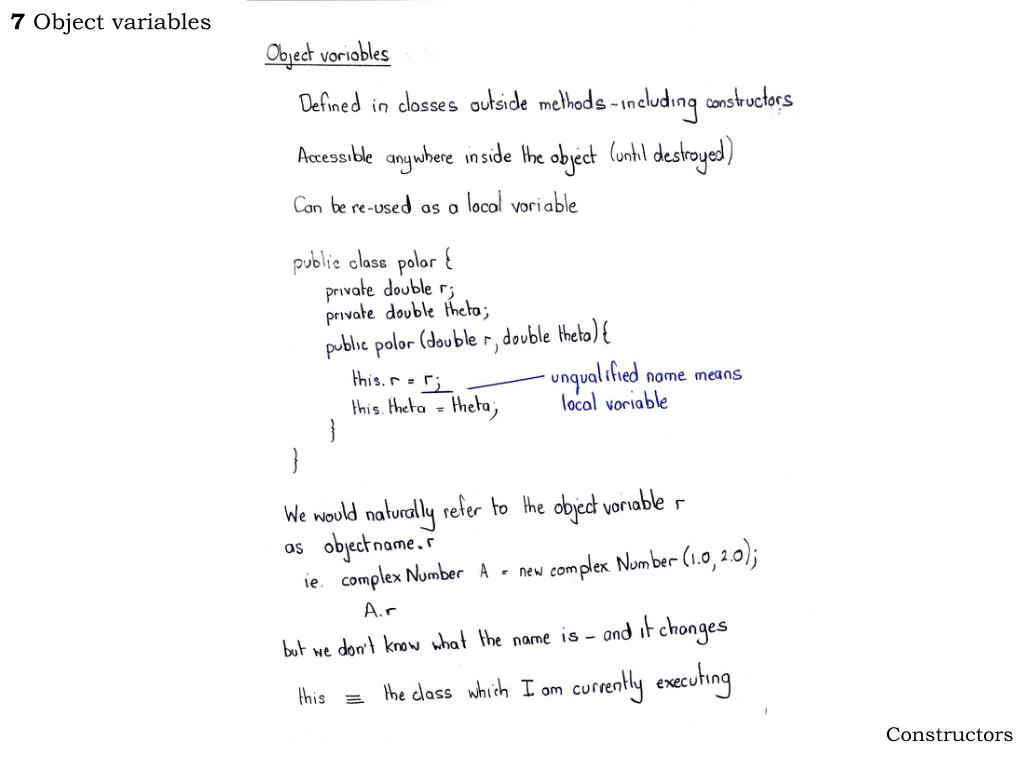 7 Object variables
Object variables
Defined in classes outside methods - including constructors
Accessible anywhere inside the object (until destroyed)
Can be re-used as a local variable
public class polar {
private double r;
private double theta;
public polar (double r, double theta) {
this.r = r; unqualified name means
this.theta = theta; local variable
}
}
We would naturally refer to the object variable r
as objectname.r
ie. complex Number A = new complex Number (1.0, 2.0);
A.r
but we don't know what the name is - and it changes
this ≡ the class which I am currently executing
Constructors